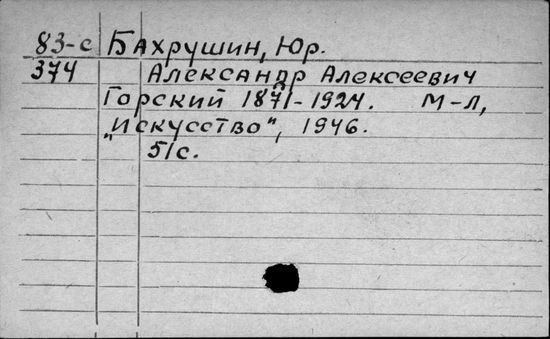 83-с Бахрушин, Юр.
374 Александр Алексеевич
Горский 1871-1924. М-Л,
„Искусство", 1946.
51с.